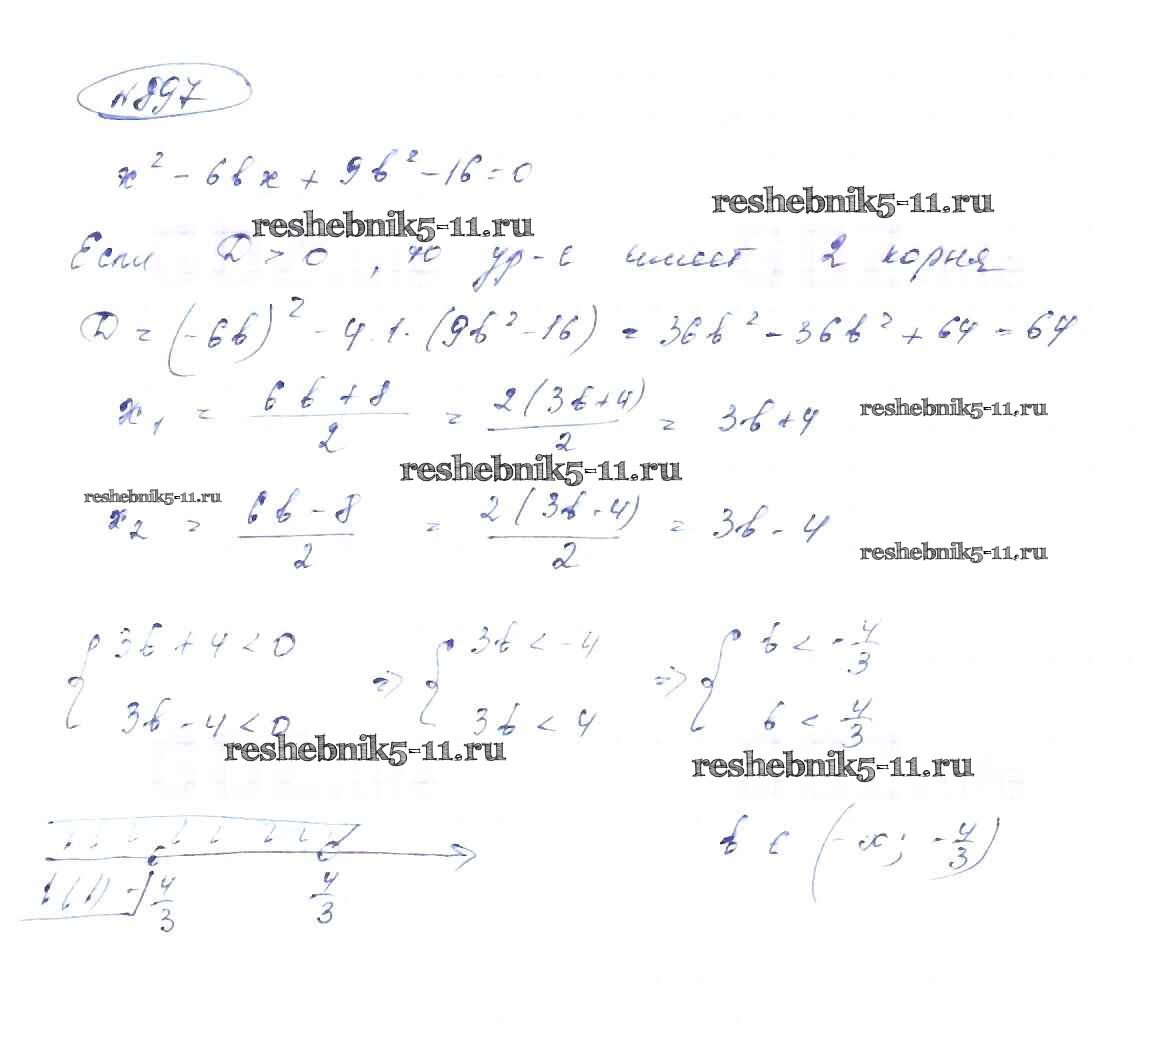 №897
x² - 6bx + 9b² - 16 = 0
reshebnik5-11.ru
reshebnik5-11.ru
Если D > 0, то ур-е имеет 2 корня
D = (-6b)² - 4·1·(9b² - 16) = 36b² - 36b² + 64 = 64
x₁ = (6b + 8)/2 = 2(3b + 4)/2 = 3b + 4
reshebnik5-11.ru
reshebnik5-11.ru
reshebnik5-11.ru
x₂ = (6b - 8)/2 = 2(3b - 4)/2 = 3b - 4
reshebnik5-11.ru
{ 3b + 4 < 0 => { 3b < -4 => { b < -4/3
3b - 4 < 0 3b < 4 b < 4/3
reshebnik5-11.ru
reshebnik5-11.ru
b ∈ (-∞; -4/3)
-4/3 4/3